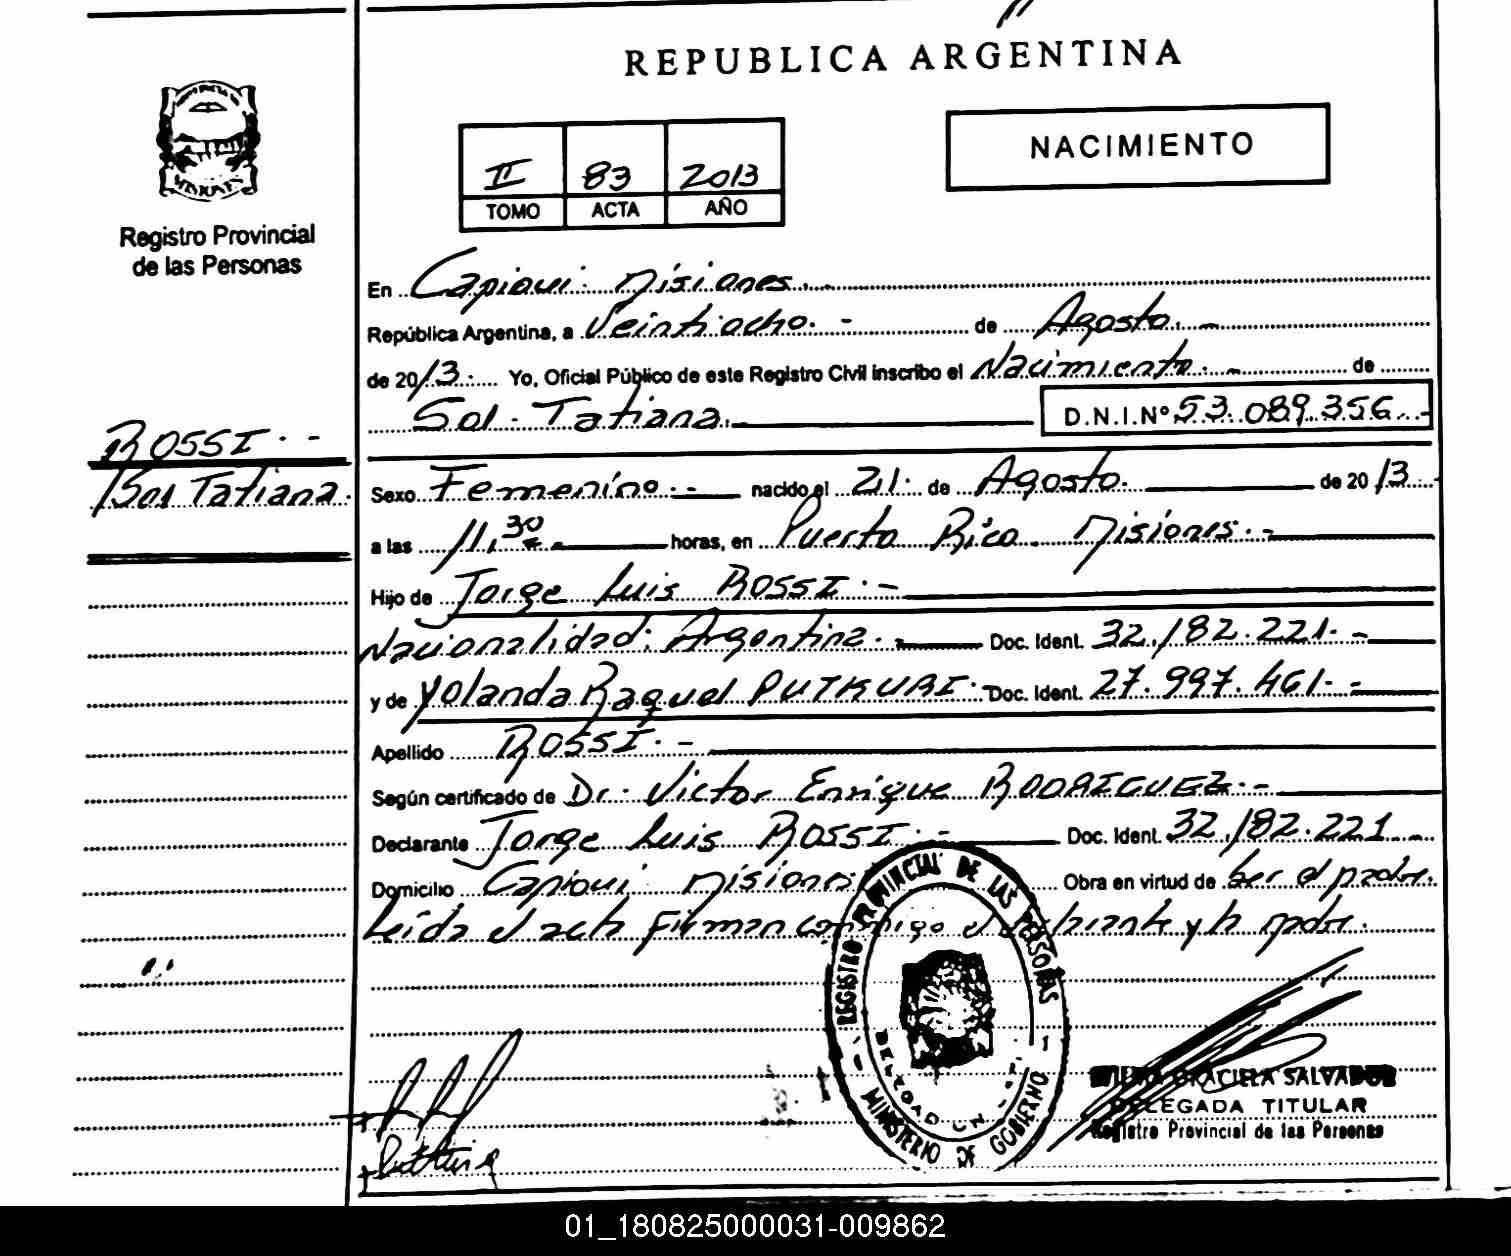 REPUBLICA ARGENTINA
NACIMIENTO
II 83 2013
TOMO ACTA AÑO
MISIONES
Registro Provincial
de las Personas
En Capiovi. Misiones.-
República Argentina, a Veintiocho.- de Agosto.-
de 2013. Yo, Oficial Público de este Registro Civil inscribo el Nacimiento.- de
Sol Tatiana.- D.N.I.Nº 53.089.356.-
ROSSI.-
Sol Tatiana.
Sexo Femenino.- nacido el 21. de Agosto. de 2013.-
a las 11,30.- horas, en Puerto Rico. Misiones.-
Hijo de Jorge Luis ROSSI.-
Nacionalidad: Argentina.- Doc. Ident. 32.182.221.-
y de Yolanda Raquel PUTKURI.- Doc. Ident. 27.997.461.-
Apellido ROSSI.-
Según certificado de Dr. Victor Enrique RODRIGUEZ.-
Declarante Jorge Luis ROSSI.- Doc. Ident. 32.182.221.-
Domicilio Capiovi. Misiones Obra en virtud de ser el padre.
Leída el acta Firman conmigo el y la madre.
REGISTRO PROVINCIAL DE LAS PERSONAS
MINISTERIO DE GOBIERNO
GRACIELA SALVADOR
DELEGADA TITULAR
Registro Provincial de las Personas
01_180825000031-009862